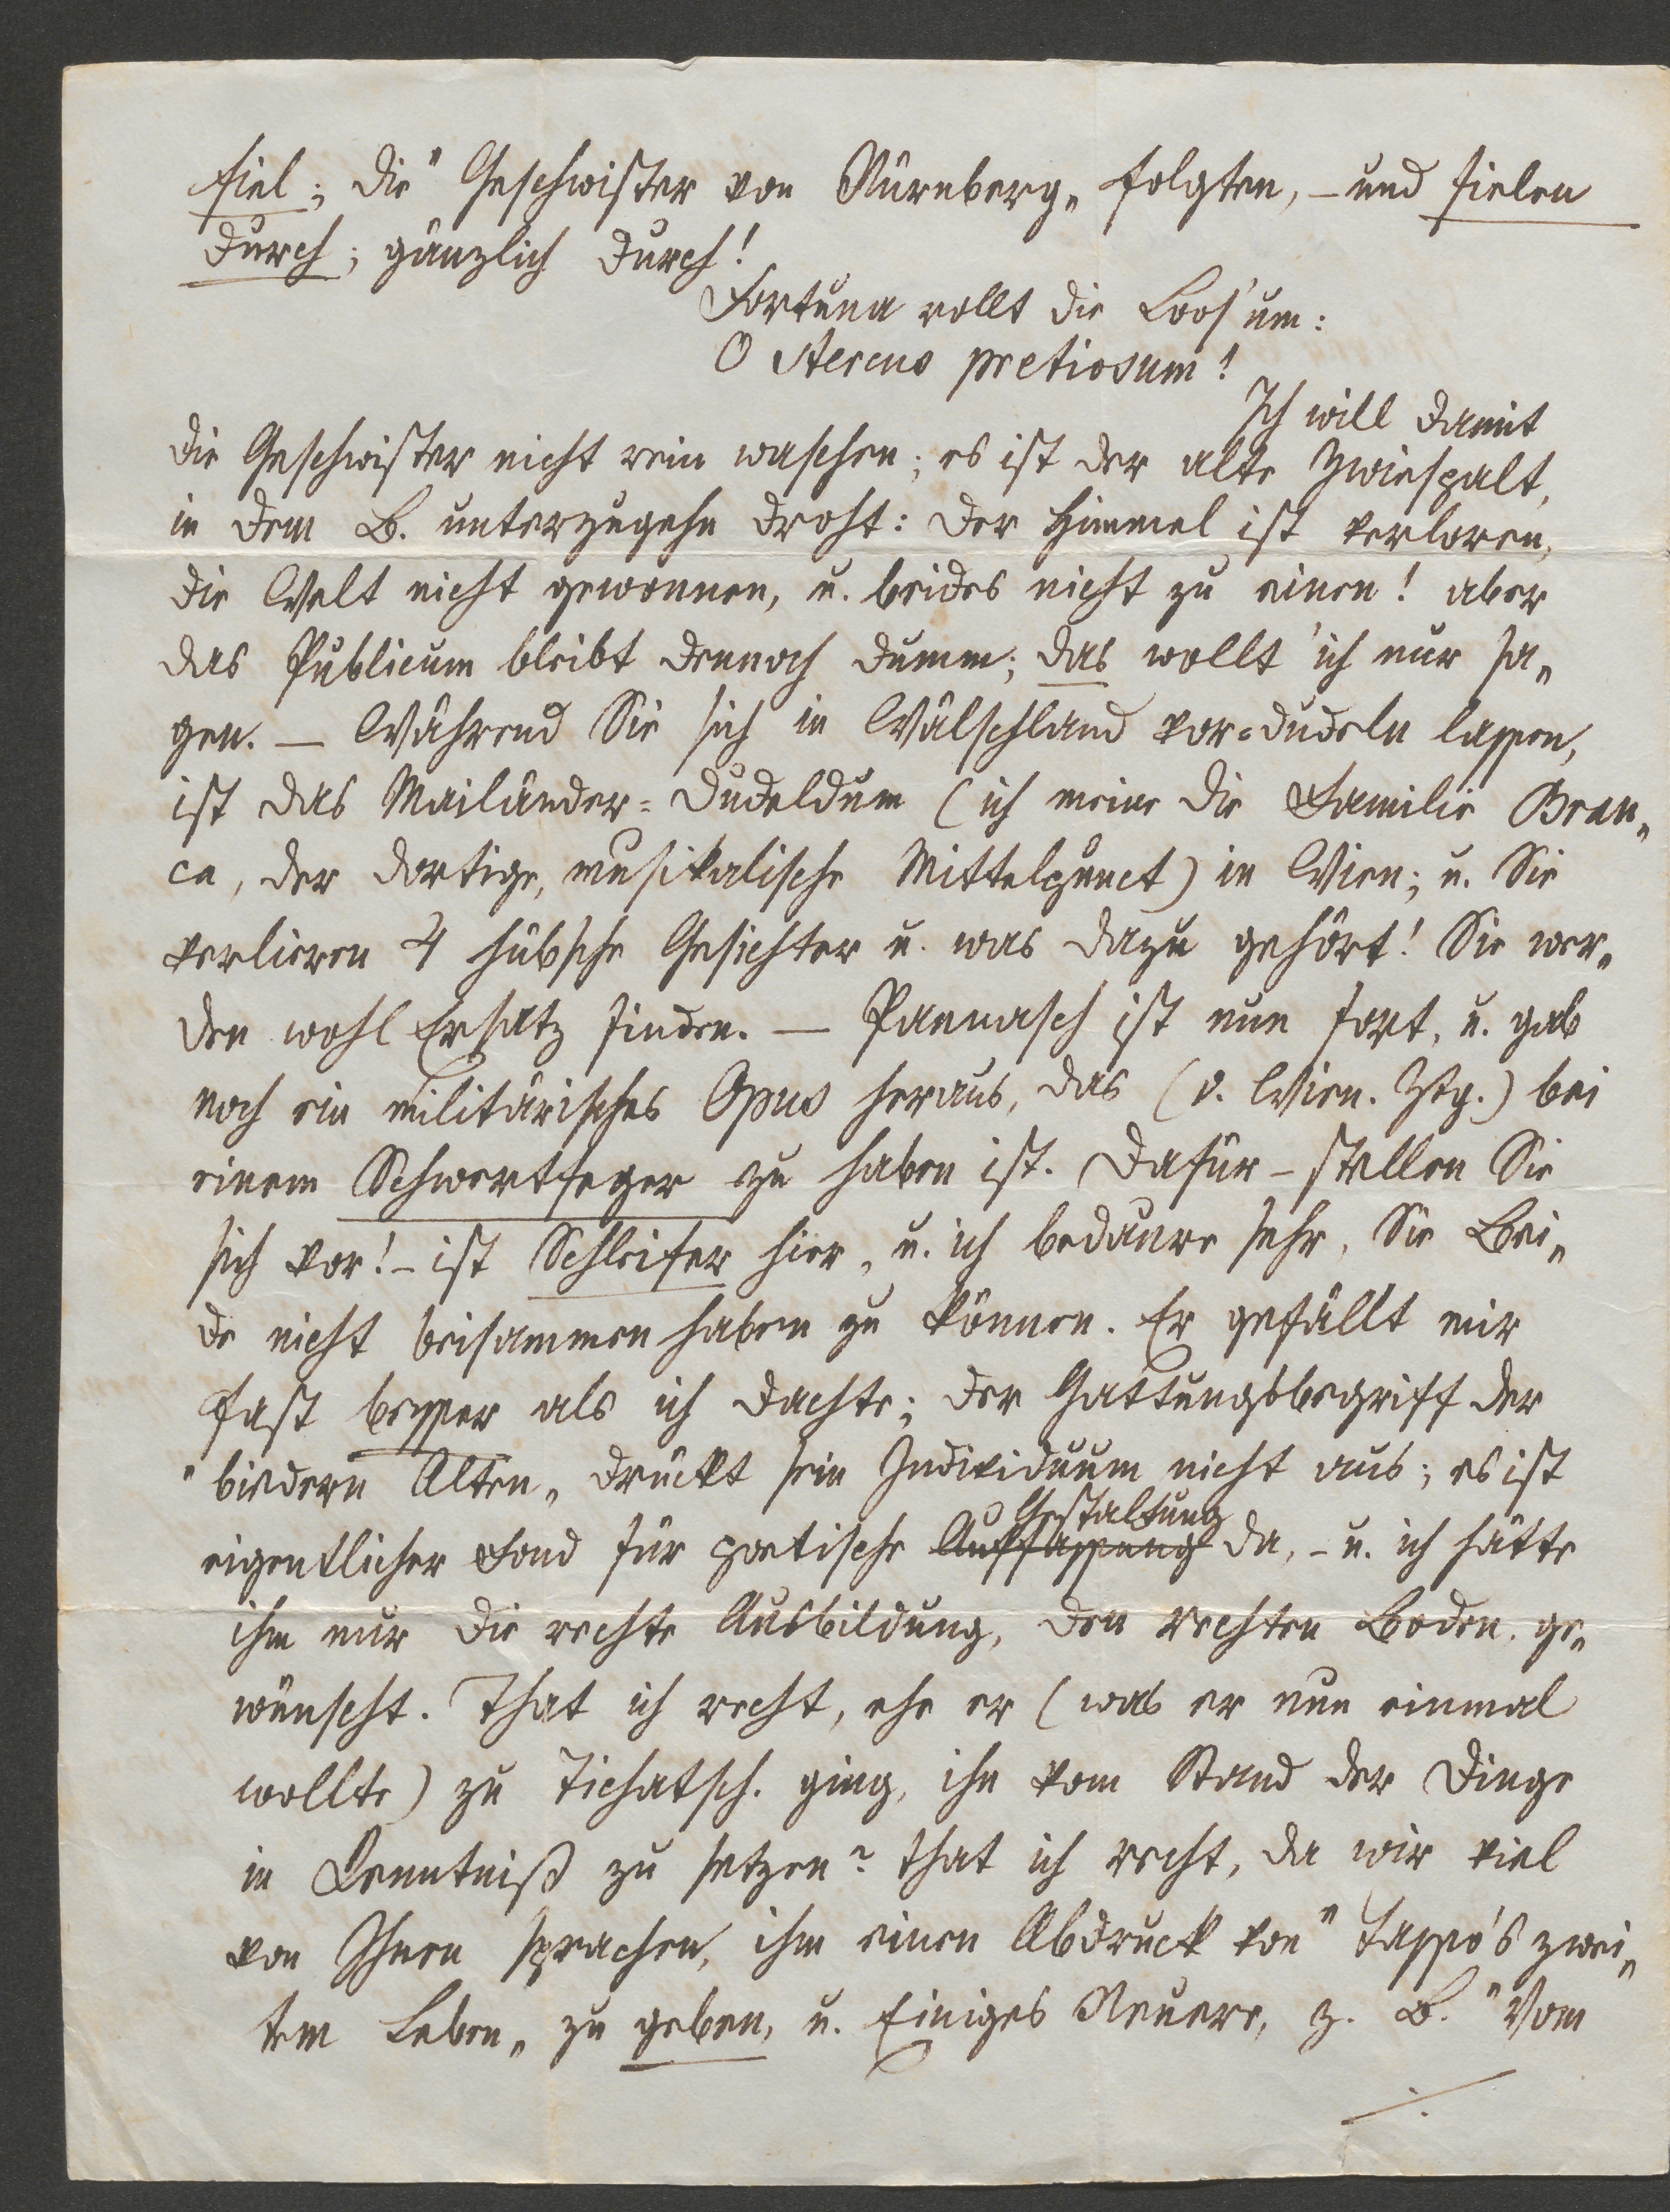 fiel; die "Geschwister von Nürnberg„ folgten, – und fielen
durch; gänzlich durch!
Fortuna rollt die Loos' um:
O stercus pretiosum!
Ich will damit
die Geschwister nicht rein waschen; es ist der alte Zwiespalt,
in dem B. unterzugehn droht: der Himmel ist verloren,
die Welt nicht gewonnen, u. beides nicht zu einen! aber
das Publicum bleibt dennoch dumm; das wollt' ich nur sa„
gen. — Während Sie sich in Wälschland vor=dudeln lassen,
ist das Mailänder=Dudeldum (ich meine die Familie Bran„
ca, der dortige, musikalische Mittelpunct) in Wien; u. Sie
verlieren 4 hübsche Gesichter u. was dazu gehört! Sie wer„
den wohl Ersatz finden. — Pannasch ist nun fort, u. gab
noch ein militärisches Opus heraus, das (v. Wien. Ztg.) bei
einem Schwertfeger zu haben ist. Dafür – stellen Sie
sich vor! – ist Schleifer hier, u. ich bedaure sehr, Sie Bei„
de nicht beisammen haben zu können. Er gefällt mir
fast besser als ich dachte; der Gattungsbegriff der
"biedern Alten„ drückt sein Individuum nicht aus; es ist
Gestaltung
eigentlicher Fond für poetische Auffassung da, – u. ich hätte
ihm nur die rechte Ausbildung, den rechten Boden ge„
wünscht. That ich recht, ehe er (was er nun einmal
wollte) zu Tichatsch. ging, ihn vom Stand der Dinge
in Kenntniß zu setzen? that ich recht, da wir viel
von Ihnen sprachen, ihm einen Abdruck von "Tasso's zwei„
tem Leben„ zu geben, u. Einiges Neuere, z. B. "Vom
./.